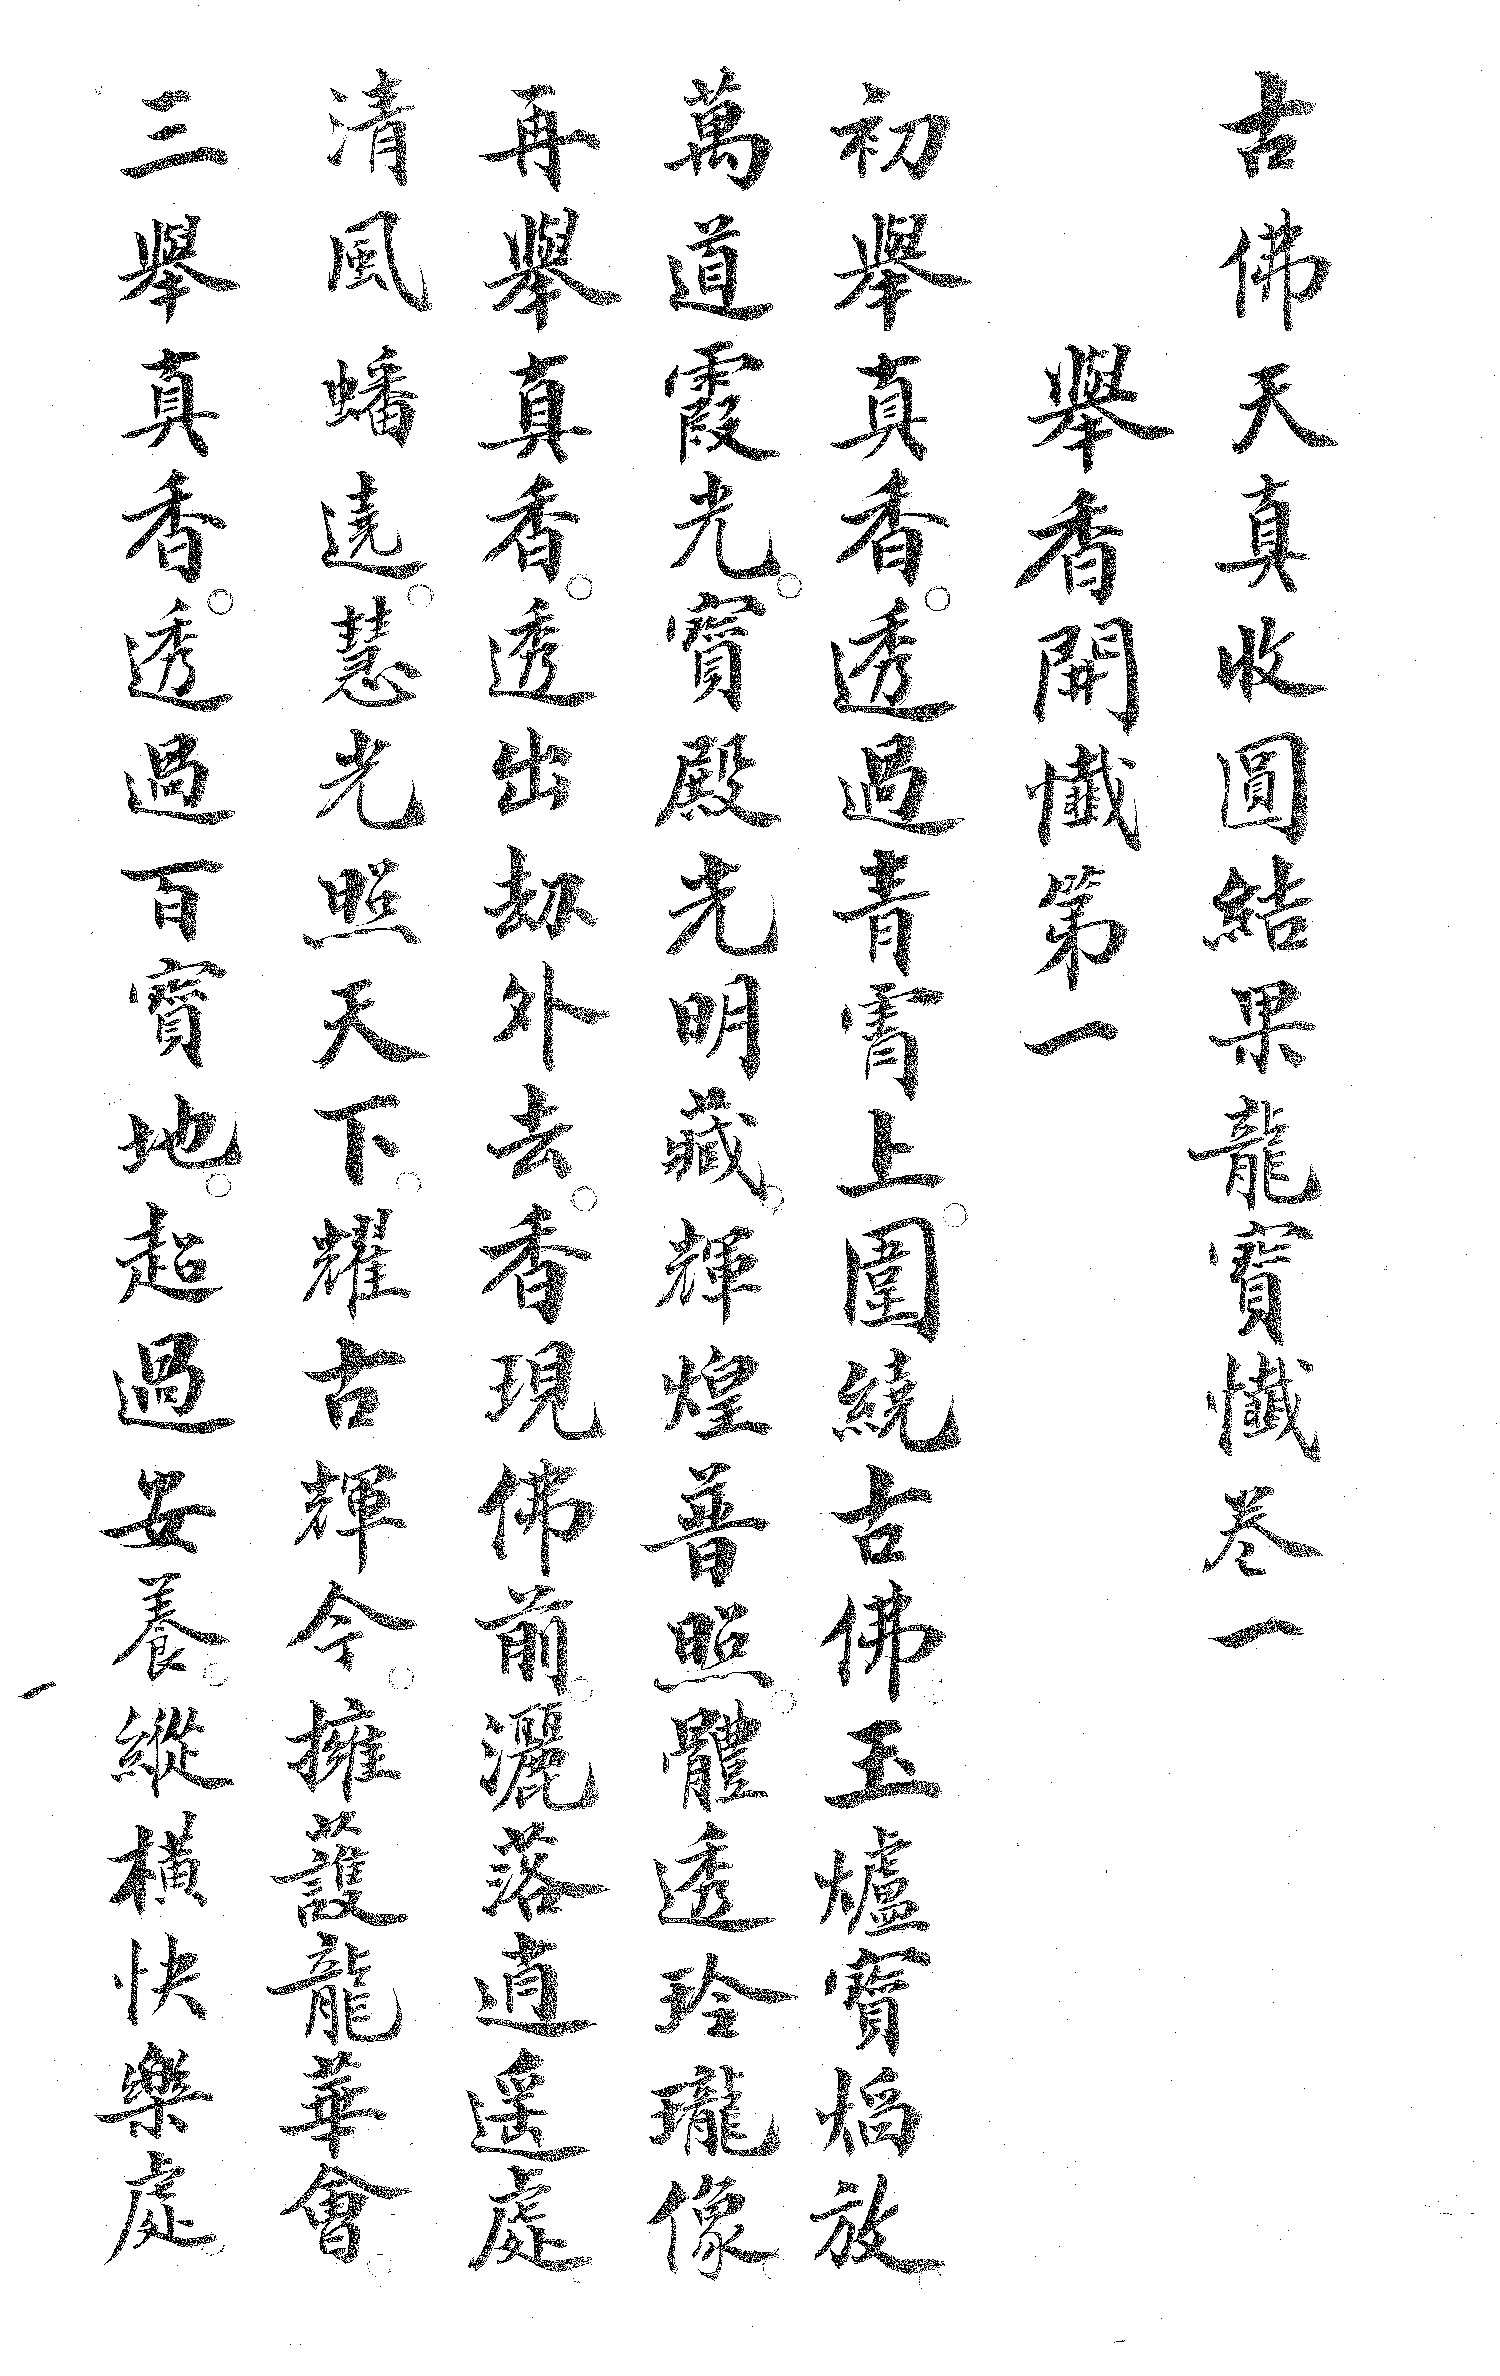 古佛天真收圓結果龍寶懺卷一
舉香開懺第一
初舉真香。透過青霄上。圍繞古佛。玉爐寶焰放。
萬道霞光。寶殿光明藏。輝煌普照。體透玲瓏像。
再舉真香。透出劫外去。香現佛前。灑落逍遙處。
清風蟠遶。慧光照天下。耀古輝今。擁護龍華會。
三舉真香。透過百寶地。超過安養。縱橫快樂處。
一